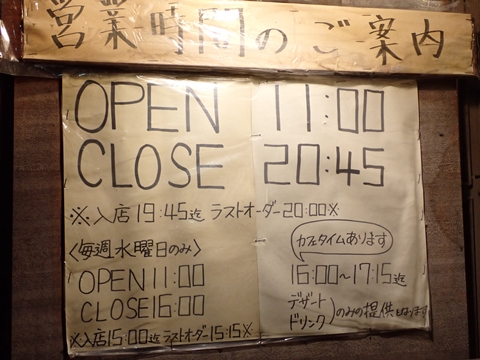 営業時間のご案内
OPEN 11:00
CLOSE 20:45
※入店19:45迄 ラストオーダー20:00※
〈毎週水曜日のみ〉
OPEN 11:00
CLOSE 16:00
※入店15:00迄 ラストオーダー15:15※
カフェタイムあります
16:00〜17:15迄
デザート
ドリンク)のみの提供となります